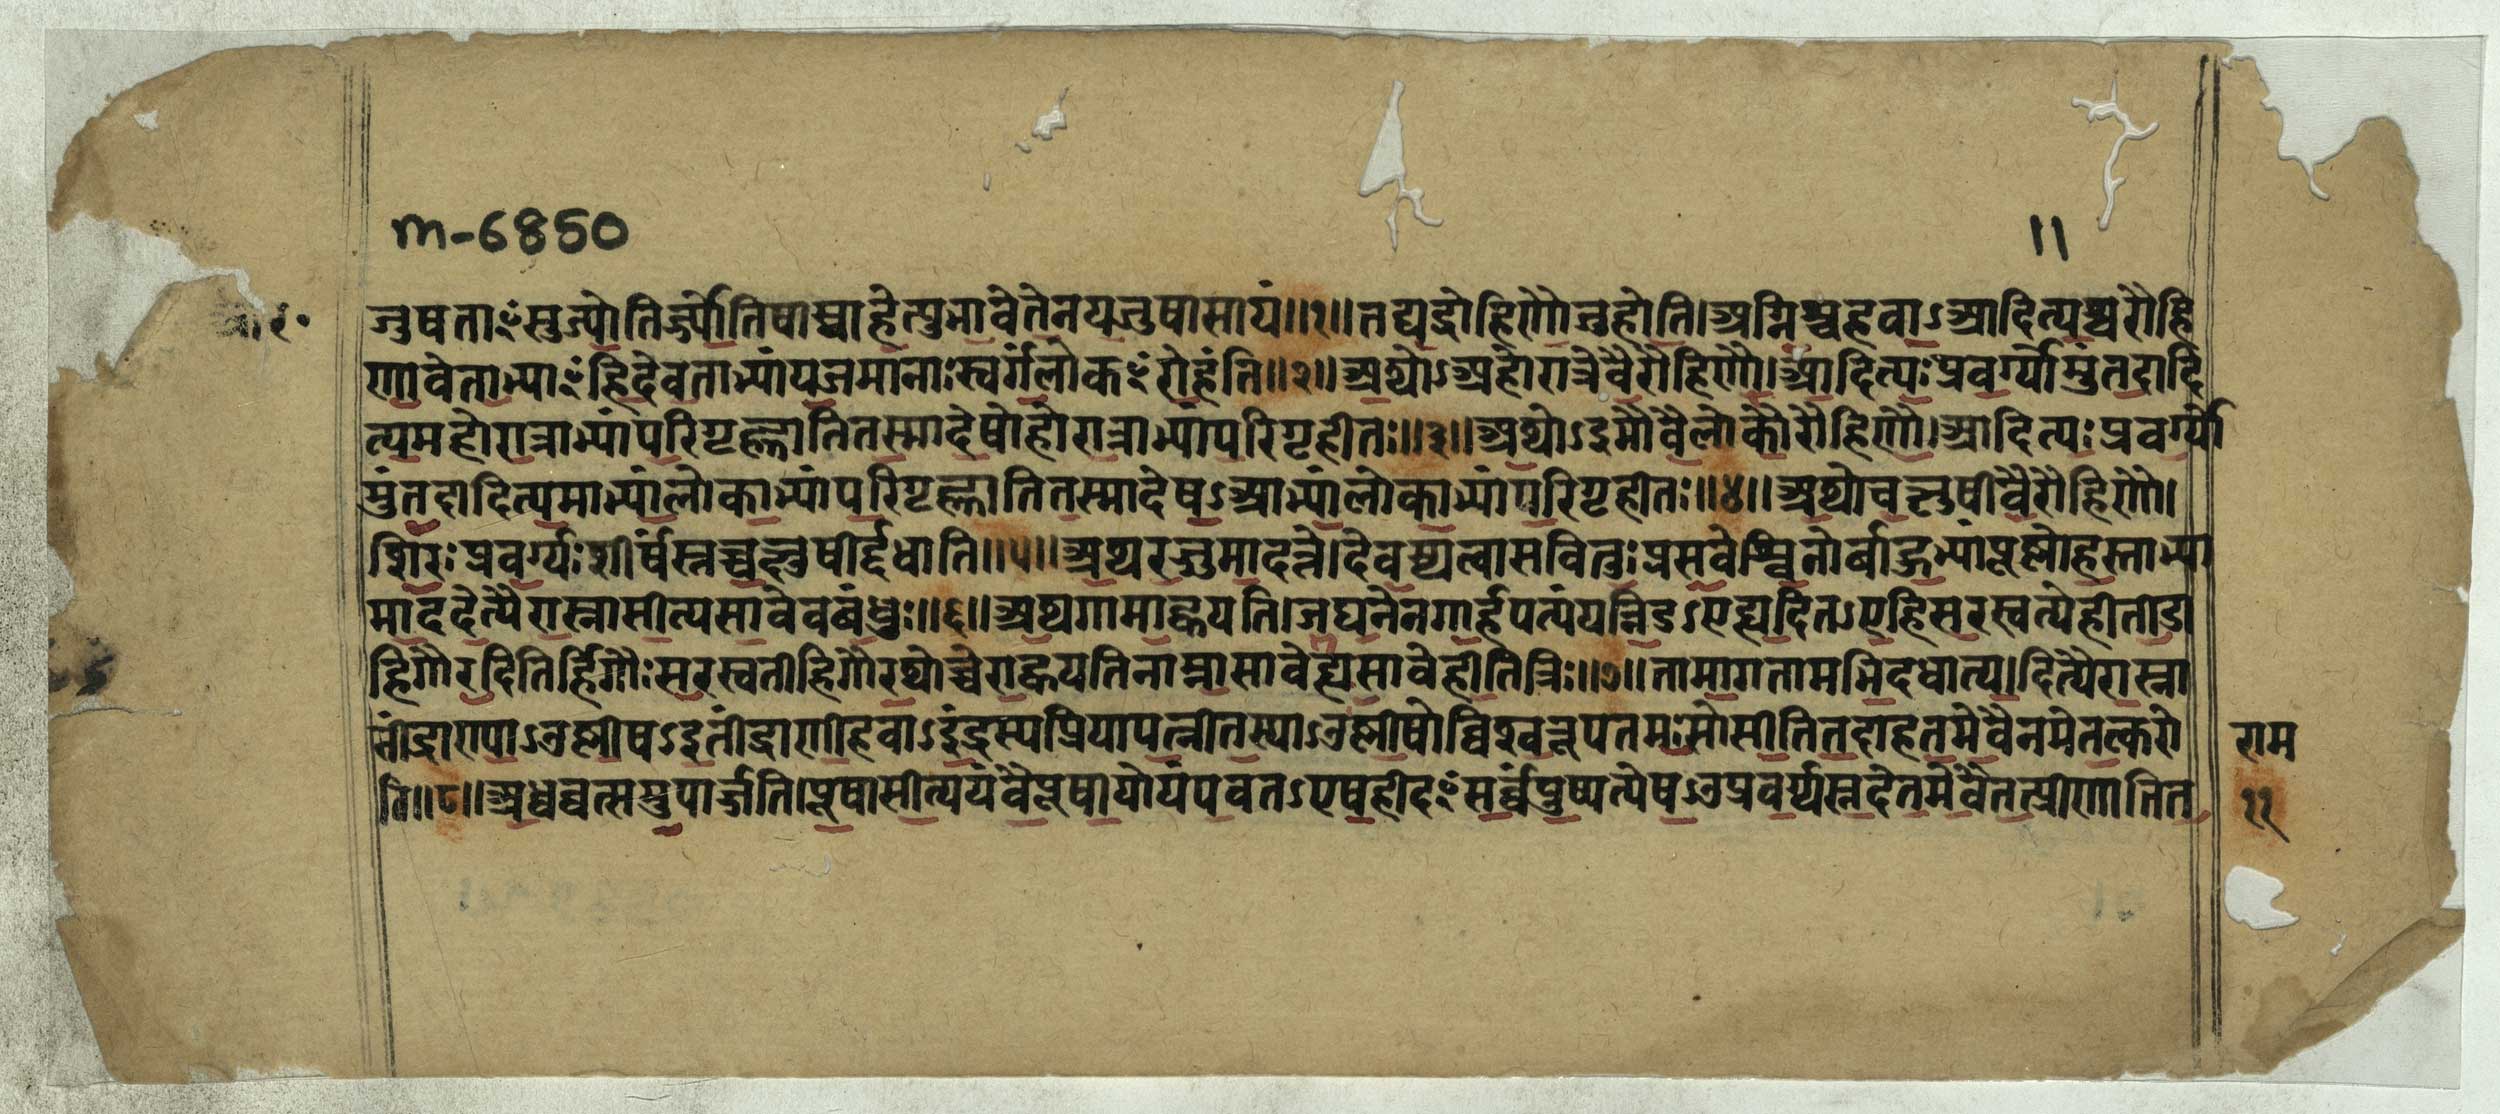 m-6850
11
जुषताꣳसुज्योतिर्ज्योतिषास्वाहेत्युभावेतेनयजुषासायं॥१॥तद्यद्रौहिणौजुहोति।अग्निश्चहवाऽआदित्यश्चरौहि
णावेताभ्याꣳहिदेवताभ्यांयजमानाःस्वर्गंलोकꣳरोहंति॥२॥अथोऽअहोरात्रेवैरौहिणौ।आदित्यःप्रवर्ग्योमुंतदादि
त्यमहोरात्राभ्यांपरिगृह्णातितस्मादेषोहोरात्राभ्यांपरिगृहीतः॥३॥अथोऽइमौवैलोकौरौहिणौ।आदित्यःप्रवर्ग्यो
मुंतदादित्यमाभ्यांलोकाभ्यांपरिगृह्णातितस्मादेषऽआभ्यांलोकाभ्यांपरिगृहीतः॥४॥अथोचक्षुषीवैरौहिणौ।
शिरःप्रवर्ग्यःशीर्षंस्तच्चक्षुषीर्द्दधाति॥५॥अथरज्जुमादत्ते।देवस्यत्वासवितुःप्रसवेश्विनोर्बाहुभ्यांपूष्णोहस्ताभ्या
माददेत्यैरास्नासीत्यसावेवबंधुः॥६॥अथगामाह्वयति।जघनेनगार्हपत्यंयन्निडऽएह्यदितऽएहिसरस्वत्येहीतीडा
हिगौरदितिर्हिगौःसरस्वतीहिगौरथोच्चैराह्वयतिनाम्नासावेह्यसावेहीतित्रिः॥७॥तामागतामभिदधात्य।दित्यैरास्ना
सींद्राण्याऽउष्णीषऽइतींद्राणीहवाऽइंद्रस्यप्रियापत्नीतस्याऽउष्णीषोविश्वरूपतमःसोसीतितदाहतमेवैनमेतत्करो
ति॥८॥अथवत्समुपार्जति।पूषासीत्ययंवैपूषायोयंपवतऽएषहीदꣳसर्वंपुष्यत्येषऽउप्रवर्ग्यस्तदेतमेवैतत्प्रीणातित
राम
११